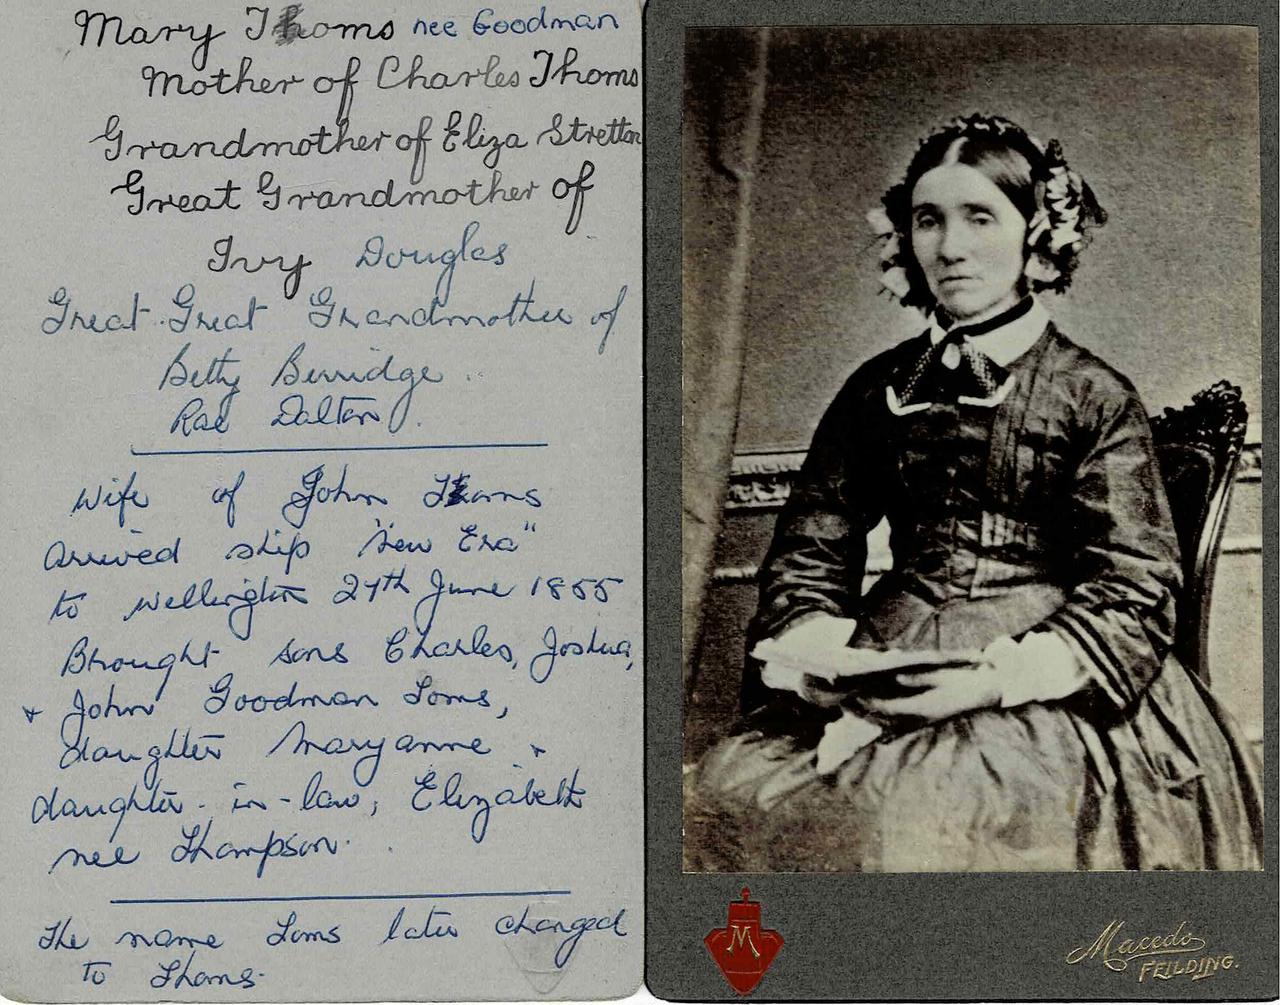 Mary Thoms nee Goodman
Mother of Charles Thoms
Grandmother of Eliza Stretton
Great Grandmother of
Ivy Douglas
Great-Great Grandmother of
Betty Berridge.
Rae Dalton.
wife of John Thoms
arrived ship "New Era"
to Wellington 27th June 1855
Brought sons Charles, Joshua,
+ John Goodman Toms,
daughter Maryanne +
daughter-in-law, Elizabeth
nee Thompson.
The name Toms later changed
to Thoms.
M
Macedo
FEILDING.